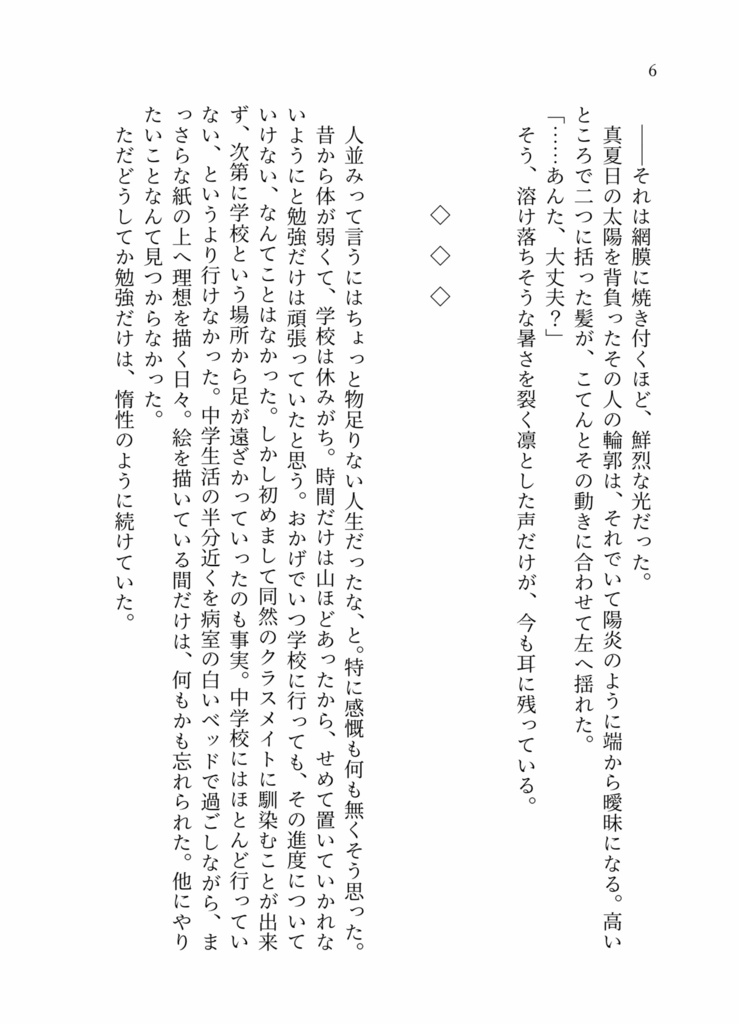 6
――それは網膜に焼き付くほど、鮮烈な光だった。
真夏日の太陽を背負ったその人の輪郭は、それでいて陽炎のように端から曖昧になる。高い
ところで二つに括った髪が、こてんとその動きに合わせて左へ揺れた。
「……あんた、大丈夫？」
そう、溶け落ちそうな暑さを裂く凛とした声だけが、今も耳に残っている。
◇ ◇ ◇
人並みって言うにはちょっと物足りない人生だったな、と。特に感慨も何も無くそう思った。
昔から体が弱くて、学校は休みがち。時間だけは山ほどあったから、せめて置いていかれな
いようにと勉強だけは頑張っていたと思う。おかげでいつ学校に行っても、その進度について
いけない、なんてことはなかった。しかし初めまして同然のクラスメイトに馴染むことが出来
ず、次第に学校という場所から足が遠ざかっていったのも事実。中学校にはほとんど行ってい
ない、というより行けなかった。中学生活の半分近くを病室の白いベッドで過ごしながら、ま
っさらな紙の上へ理想を描く日々。絵を描いている間だけは、何もかも忘れられた。他にやり
たいことなんて見つからなかった。
ただどうしてか勉強だけは、惰性のように続けていた。